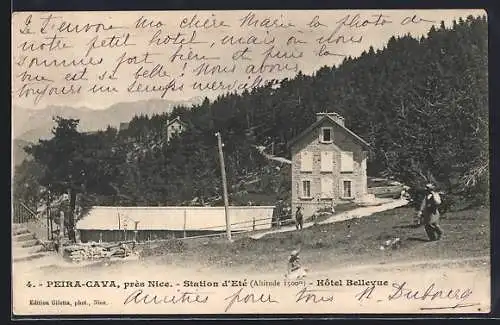 Je t'envoie ma chère Marie la photo de
notre petit hôtel, mais on nous
sommes fort bien et on y est si
vue est si belle ! Nous avons
toujours un temps merveilleux
4 - PEIRA-CAVA, près Nice. - Station d'Eté (Altitude 1500m) - Hôtel Bellevue
Edition Giletta, phot., Nice.
Amitiés pour tous M. Dubourg